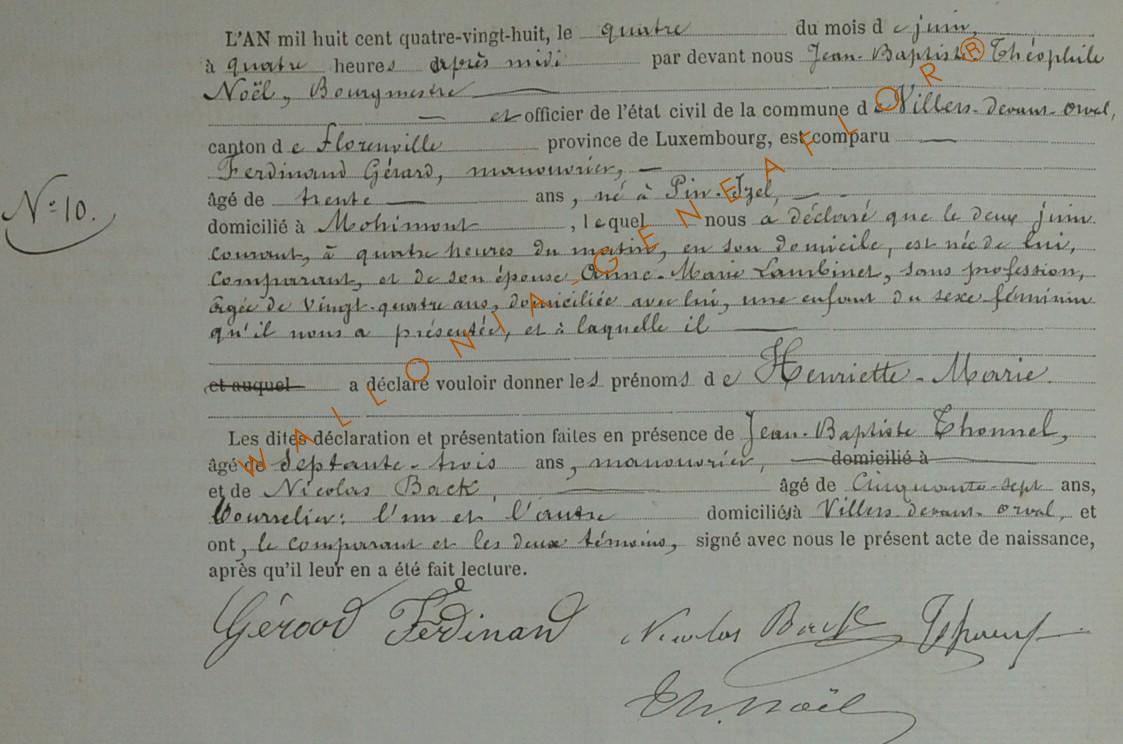 L'AN mil huit cent quatre-vingt-huit, le quatre du mois de juin,
à quatre heures après midi par devant nous Jean-Baptiste Théophile
Noël, Bourgmestre
et officier de l'état civil de la commune de Villers-devant-Orval,
canton de Florenville province de Luxembourg, est comparu
Ferdinand Gérard, manouvrier,
âgé de trente ans, né à Pin-Izel,
No 10.
domicilié à Mohimont, lequel nous a déclaré que le deux juin
courant, à quatre heures du matin, en son domicile, est née de lui,
comparant, et de son épouse Anne-Marie Lambinet, sans profession,
âgée de vingt-quatre ans, domiciliée avec lui, une enfant du sexe féminin
qu'il nous a présentée, et à laquelle il
et auquel a déclaré vouloir donner les prénoms de Henriette-Marie.
Les dites déclaration et présentation faites en présence de Jean-Baptiste Thonnel,
âgé de septante-trois ans, manouvrier, domicilié à
et de Nicolas Back, âgé de cinquante-sept ans,
bourrelier: l'un et l'autre domiciliés à Villers-devant-Orval, et
ont, le comparant et les deux témoins, signé avec nous le présent acte de naissance,
après qu'il leur en a été fait lecture.
Gérard Ferdinand Nicolas Back
Th. Noël
WALLONIA-GENEAFLOR®